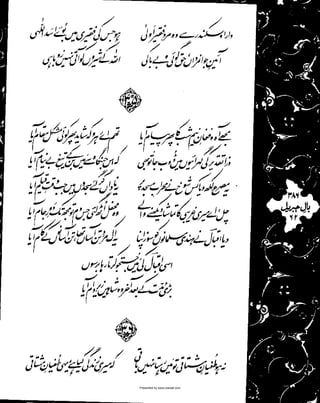 دارا و سکندر سے وہ مردِ فقیر اولیٰ ہو جس کی فقیری میں بوئے اسد اللّٰہی
آئینِ جوانمرداں حق گوئی و بے باکی اللہ کے شیروں کو آتی نہیں روباہی
۳۵
مجھے آہ و فغانِ نیم شب کا پھر پیام آیا تھم اے رہرو کہ شاید پھر کوئی مشکل مقام آیا
ذرا تقدیر کی گہرائیوں میں ڈوب جا تو بھی کہ اس جنگاہ سے میں بن کے تیغِ بے نیام آیا
یہ مصرع لکھ دیا کس شوخ نے محرابِ مسجد پر یہ ناداں گر گئے سجدوں میں جب وقتِ قیام آیا
چل اے میری غریبی کا تماشا دیکھنے والے وہ محفل اٹھ گئی جس دم تو مجھ تک دورِ جام آیا
دیا اقبال نے ہندی مسلمانوں کو سوز اپنا یہ اک مردِ تن آساں تھا، تن آسانوں کے کام آیا
اسی اقبال کی میں جستجو کرتا رہا برسوں
بڑی مدت کے بعد آخر وہ شاہیں زیرِ دام آیا
۳۶
نہ ہو طغیانِ مشتاقی تو میں رہتا نہیں باقی کہ میری زندگی کیا ہے، یہی طغیانِ مشتاقی
۳۸۷
بالِ جبریل